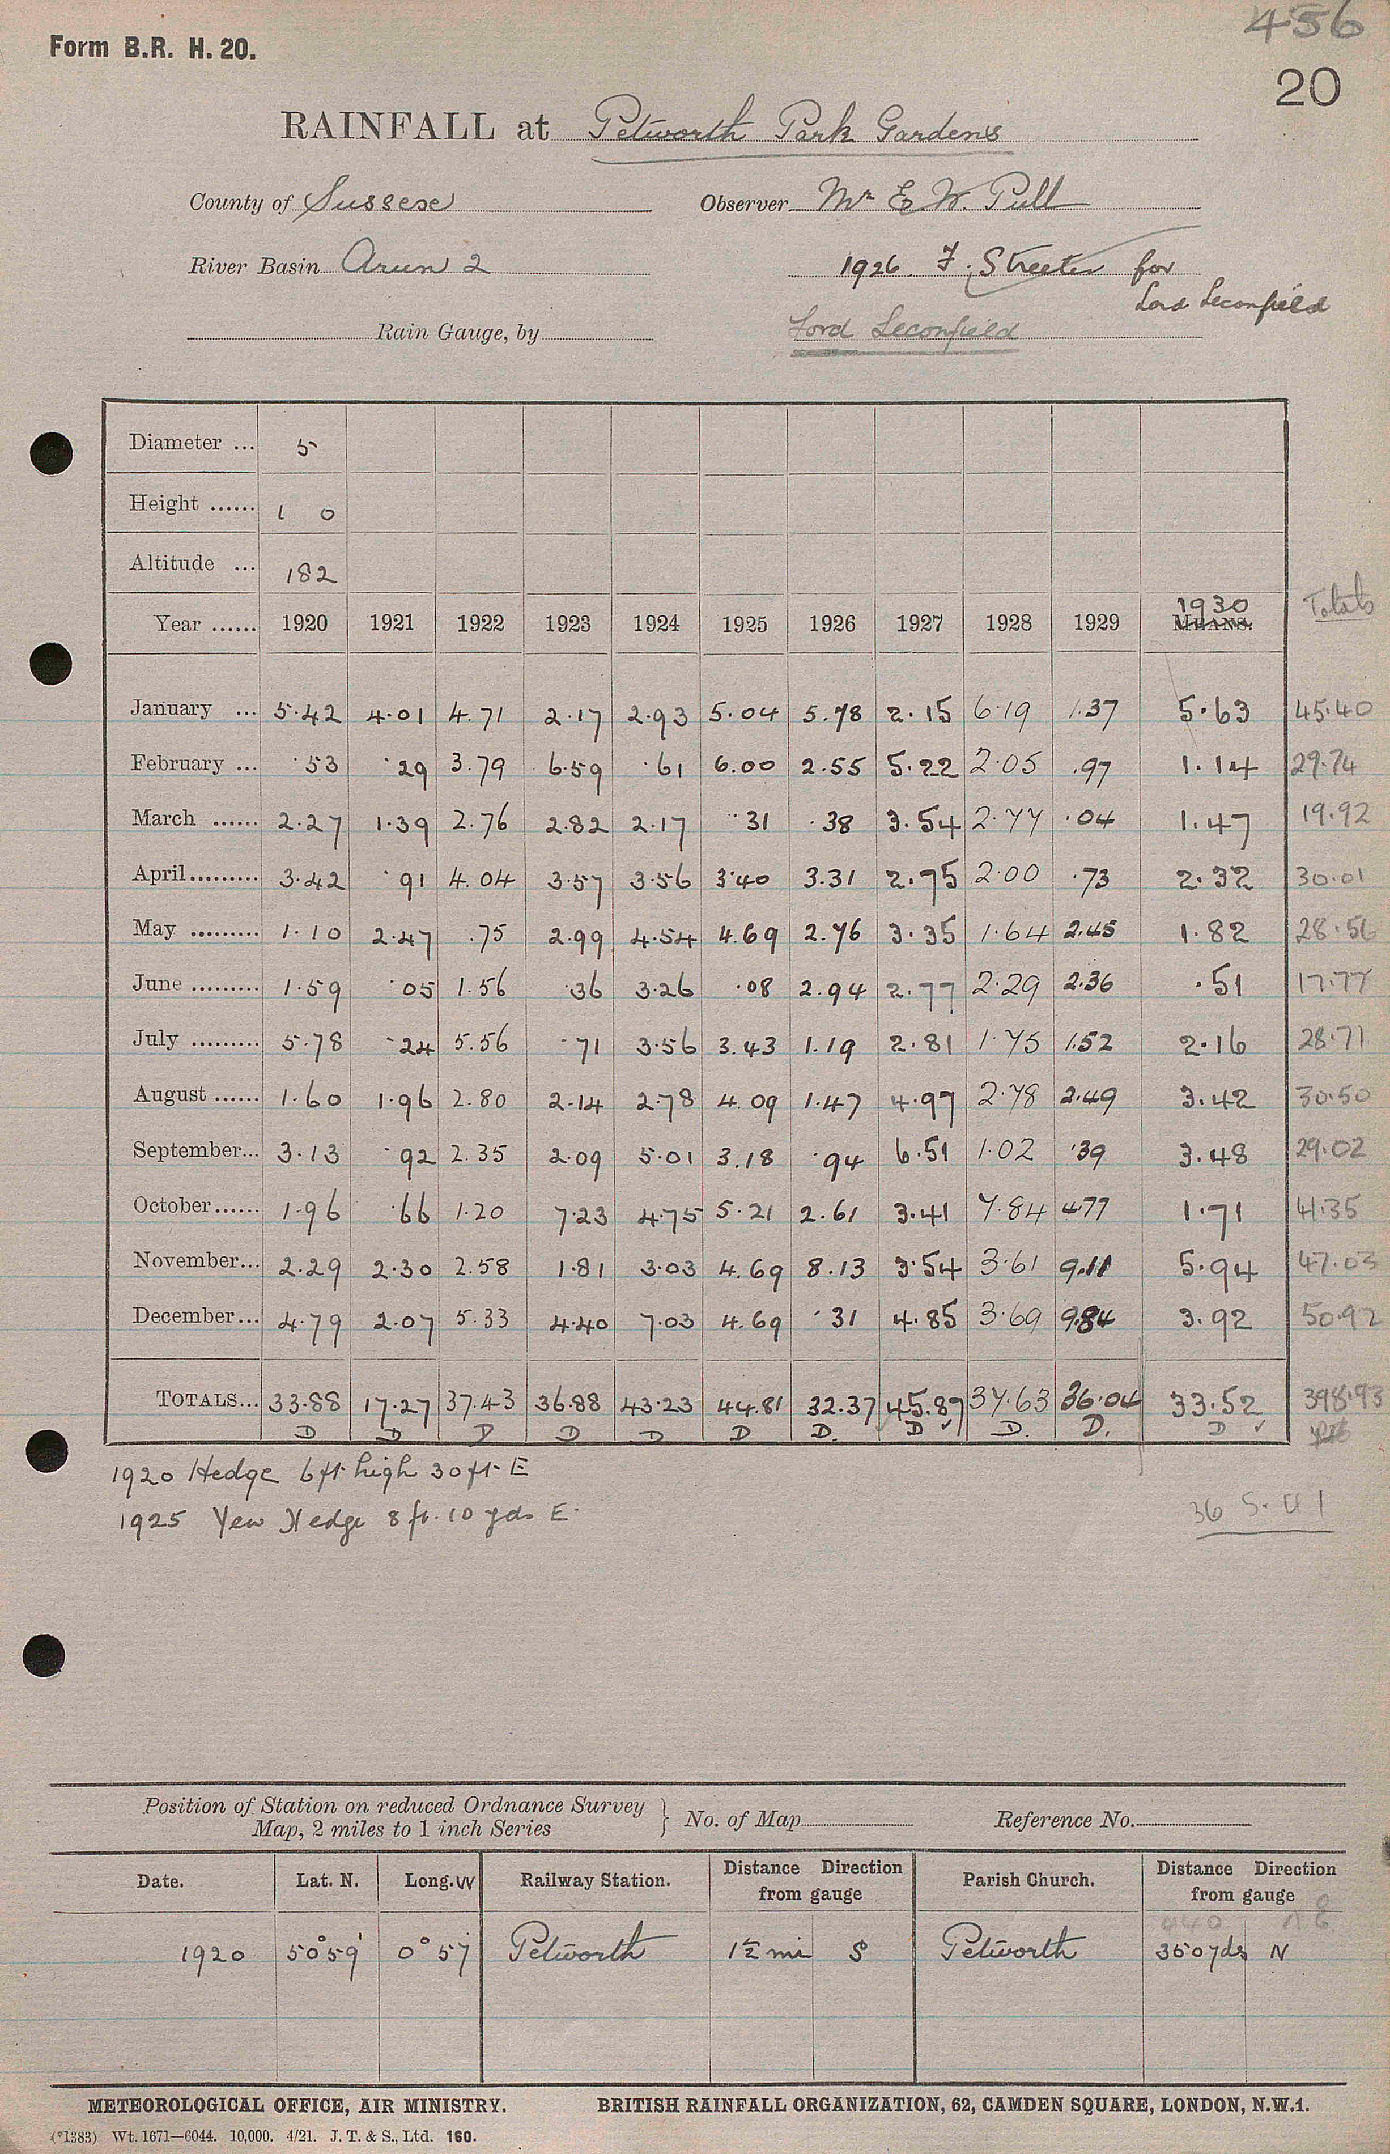 456
Form B.R. H. 20.
20
RAINFALL at Petworth Park Gardens
County of Sussex Observer Mr E. W. Pull
River Basin Arun 2 1926 F. Streeter for
Lord Leconfield
Rain Gauge, by Lord Leconfield
Diameter ... 5
Height ...... 1 0
Altitude ... 182
Year ...... 1920 1921 1922 1923 1924 1925 1926 1927 1928 1929 1930 MEANS. Totals
January ... 5.42 4.01 4.71 2.17 2.93 5.04 5.78 2.15 6.19 1.37 5.63 45.40
February ... .53 .29 3.79 6.59 .61 6.00 2.55 5.22 2.05 .97 1.14 29.74
March ...... 2.27 1.39 2.76 2.82 2.17 .31 .38 3.54 2.77 .04 1.47 19.92
April......... 3.42 .91 4.04 3.57 3.56 3.40 3.31 2.75 2.00 .73 2.32 30.01
May ......... 1.10 2.47 .75 2.99 4.54 4.69 2.76 3.35 1.64 2.45 1.82 28.56
June ......... 1.59 .05 1.56 .36 3.26 .08 2.94 2.77 2.29 2.36 .51 17.77
July ......... 5.78 .24 5.56 .71 3.56 3.43 1.19 2.81 1.75 1.52 2.16 28.71
August ...... 1.60 1.96 2.80 2.14 2.78 4.09 1.47 4.97 2.78 2.49 3.42 30.50
September... 3.13 .92 2.35 2.09 5.01 3.18 .94 6.51 1.02 .39 3.48 29.02
October...... 1.96 .66 1.20 7.23 4.75 5.21 2.61 3.41 7.84 4.77 1.71 41.35
November... 2.29 2.30 2.58 1.81 3.03 4.69 8.13 3.54 3.61 9.11 5.94 47.03
December... 4.79 2.07 5.33 4.40 7.03 4.69 .31 4.85 3.69 9.84 3.92 50.92
TOTALS... 33.88 17.27 37.43 36.88 43.23 44.81 32.37 45.87 37.63 36.04 33.52 398.93
D D D D D D D. D ✓ D. D. D ✓
1920 Hedge 6 ft. high 30 ft. E
1925 Yew Hedge 8 ft. 10 yds E.
Position of Station on reduced Ordnance Survey
Map, 2 miles to 1 inch Series } No. of Map Reference No.
Date. Lat. N. Long. W Railway Station. Distance Direction from gauge Parish Church. Distance Direction from gauge
440 N E
1920 50° 59' 0° 57 Petworth 1½ mi S Petworth 350 yds N
METEOROLOGICAL OFFICE, AIR MINISTRY. BRITISH RAINFALL ORGANIZATION, 62, CAMDEN SQUARE, LONDON, N.W.1.
(*1383) Wt. 1671—6044. 10,000. 4/21. J. T. & S., Ltd. 160.